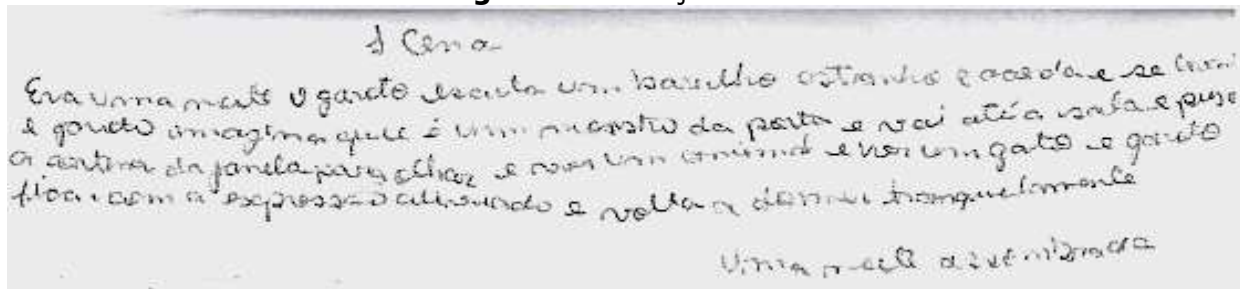 1 Cena
Era uma noite o garoto escuta um barulho estranho e acorda e se
e garoto imagina que é um monstro da porta e vai até a sala e puxa
a cortina da janela para olhar e ver um animal e ver um gato e garoto
fica com a expressão aliviado e volta a dormir tranquilamente
Uma noite assombrada